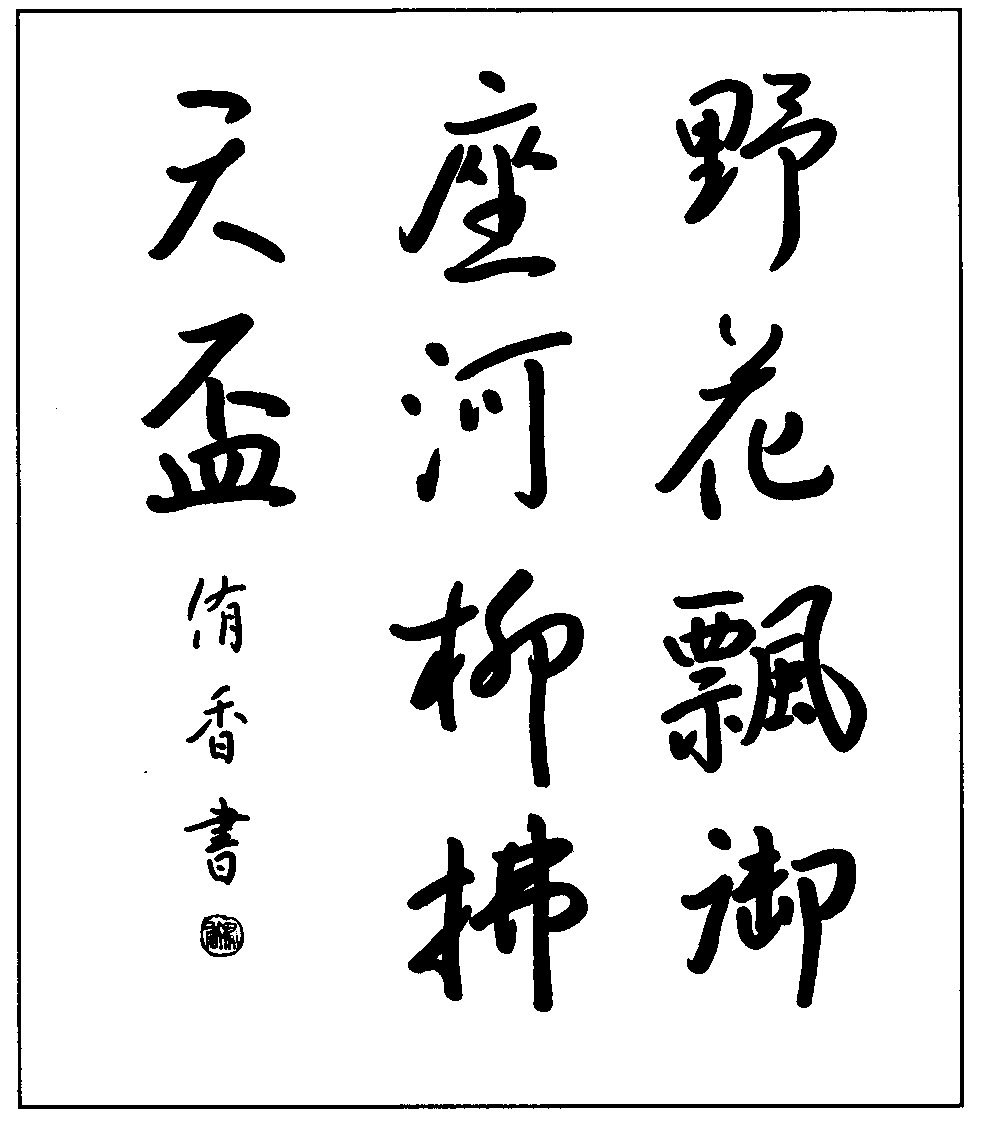 野花飄御
座河柳拂
天盃
侑香書